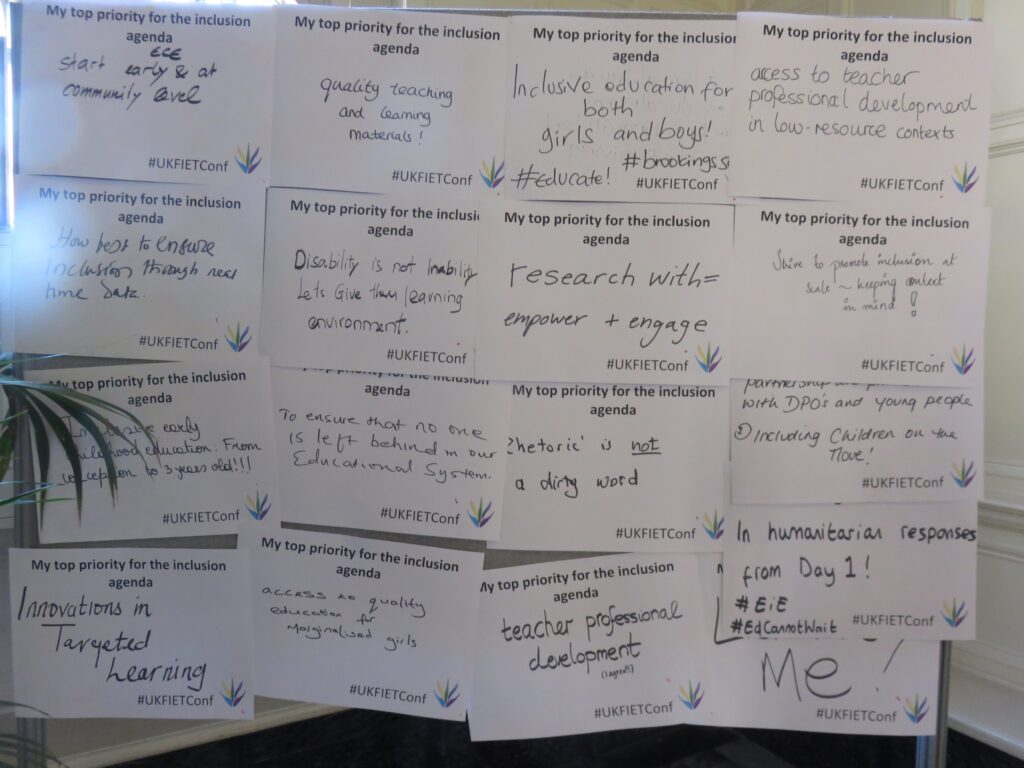 My top priority for the inclusion
agenda
ECE
start early & at
community level
#UKFIETConf
My top priority for the inclusion
agenda
quality teaching
and learning
materials!
#UKFIETConf
My top priority for the inclusion
agenda
Inclusive education for
both
girls and boys!
#brookingss
#Educate!
#UKFIETConf
My top priority for the inclusion
agenda
access to teacher
professional development
in low-resource contexts
#UKFIETConf
My top priority for the inclusion
agenda
How best to ensure
inclusion through real
time data.
#UKFIETConf
My top priority for the inclusi
agenda
Disability is not Inability
Lets Give them learning
environment.
#UKFIETConf
My top priority for the inclusion
agenda
research with=
empower + engage
#UKFIETConf
My top priority for the inclusion
agenda
Strive to promote inclusion at
scale ~ keeping context
in mind!
#UKFIETConf
My top priority for the inclusion
agenda
early
education. From
conception to 3 years old!!!
#UKFIETConf
My top priority for the inclusion
agenda
To ensure that no one
is left behind in our
Educational System.
#UKFIETConf
My top priority for the inclusion
agenda
Rhetoric' is not
a dirty word
#UKFIETConf
with DPO's and young people
Including Children on the
Move!
#UKFIETConf
My top priority for the inclusion
agenda
Innovations in
Targeted
Learning
#UKFIETConf
My top priority for the inclusion
agenda
access to quality
education for
marginalised girls
#UKFIETConf
My top priority for the inclusion
agenda
teacher professional
development
(I agree!!)
#UKFIETConf
In humanitarian responses
from Day 1!
#EiE
#EdCannotWait
#UKFIETConf
Me!
#UKFIETConf